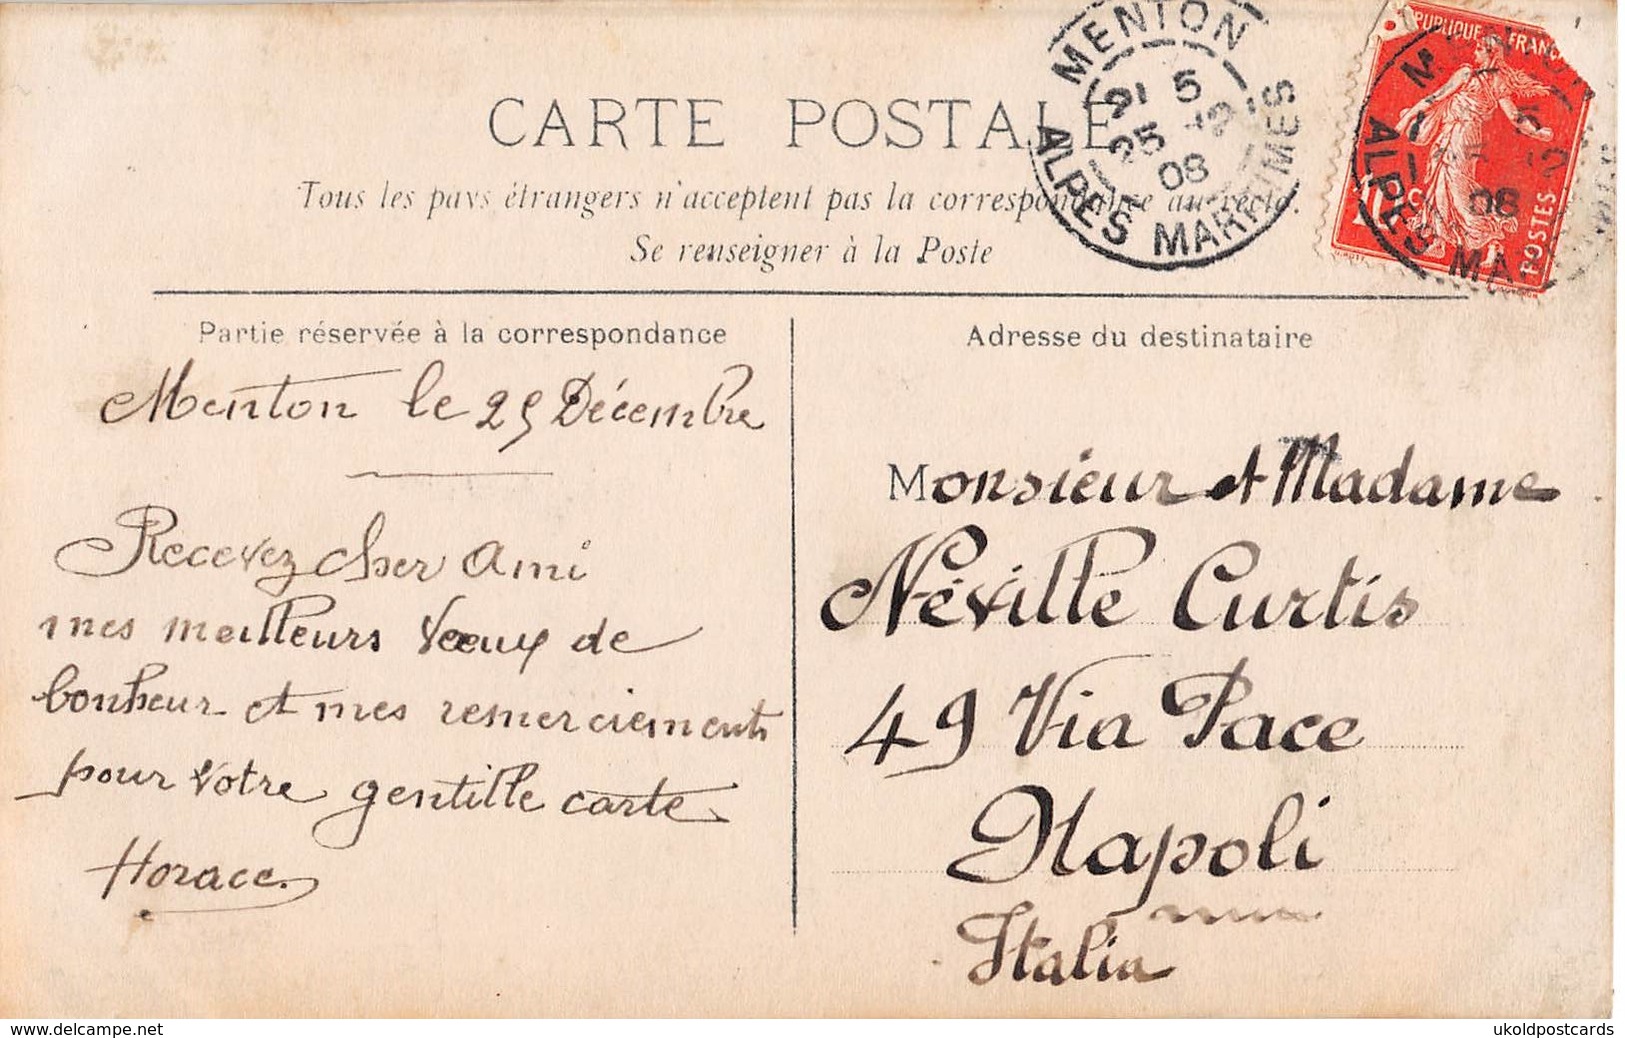 CARTE POSTALE
Tous les pays étrangers n'acceptent pas la correspondance au recto.
Se renseigner à la Poste
MENTON
5
25 -12
08
ALPES MARITIMES
RÉPUBLIQUE FRANÇ
POSTES
08
ALPES MA
Partie réservée à la correspondance
Menton le 25 Décembre
Recevez cher Ami
mes meilleurs Vœux de
bonheur et mes remerciements
pour votre gentille carte
Horace
Adresse du destinataire
Monsieur et Madame
Néville Curtis
49 Via Pace
Napoli
Italia
www.delcampe.net
ukoldpostcards